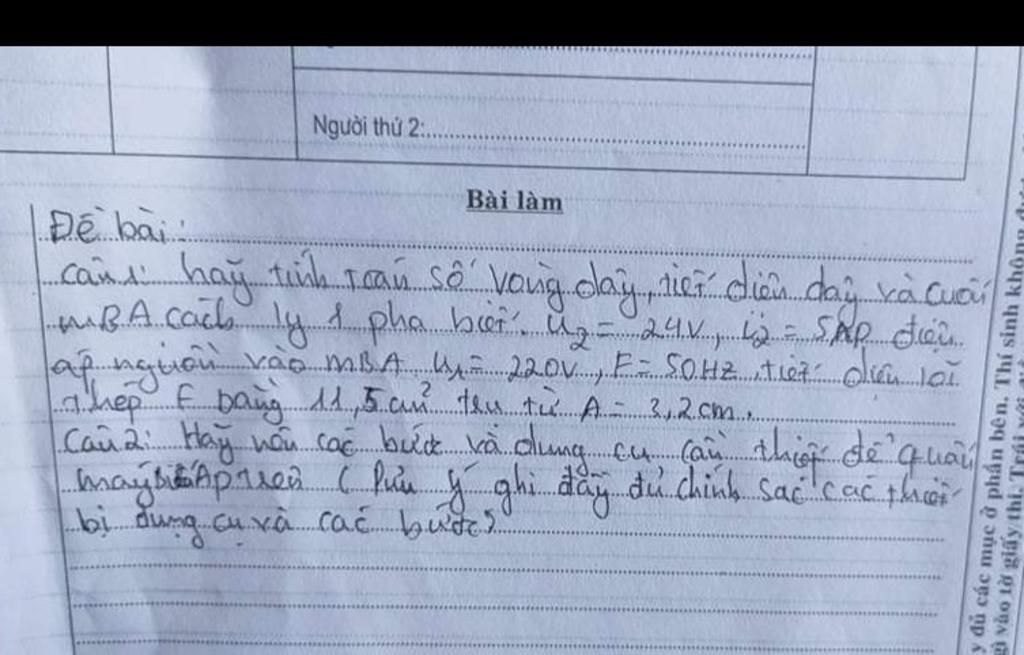 Người thứ 2:
Bài làm
Đề bài:
câu 1: hãy tính toán số vòng dây, tiết diện dây và cuối
MBA cách ly 1 pha biết. U2 = 24V, i2 = 5Ap điện
áp nguồn vào MBA U1 = 220V, F = 50Hz tiết diện lõi
thép F bằng 11,5 cm² từ A = 3,2cm.
Câu 2: Hãy nêu các bước và dụng cụ cần thiết để quấn
máy biến Áp trên ( lưu ý ghi đầy đủ chính sác các thiết
bị dụng cụ và các bước)
y đủ các mục ở phần bên. Thí sinh không
gì vào tờ giấy thi. Trái với